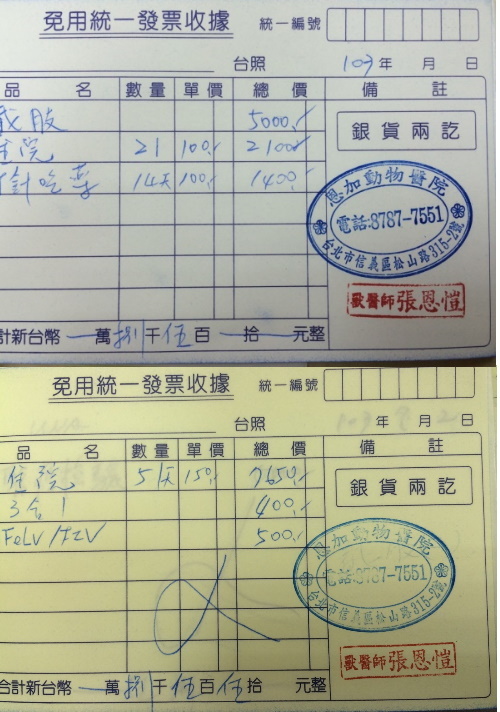 免用統一發票收據 統一編號
台照 103年 月 日
品 名 數量 單價 總價 備註
5000.-
住院 21 100.- 2100.-
針吃藥 14天 100.- 1400.-
銀貨兩訖
恩加動物醫院
電話:8787-7551
台北市信義區松山路315-2號
獸醫師張恩愷
合計新台幣 萬捌千伍百 拾 元整
免用統一發票收據 統一編號
台照 103年 月 日
品 名 數量 單價 總價 備註
住院 51天 150.- 7650.-
3合1 400.-
FeLV/FIV 500.-
銀貨兩訖
恩加動物醫院
電話:8787-7551
台北市信義區松山路315-2號
獸醫師張恩愷
合計新台幣 萬捌千伍百伍拾 元整